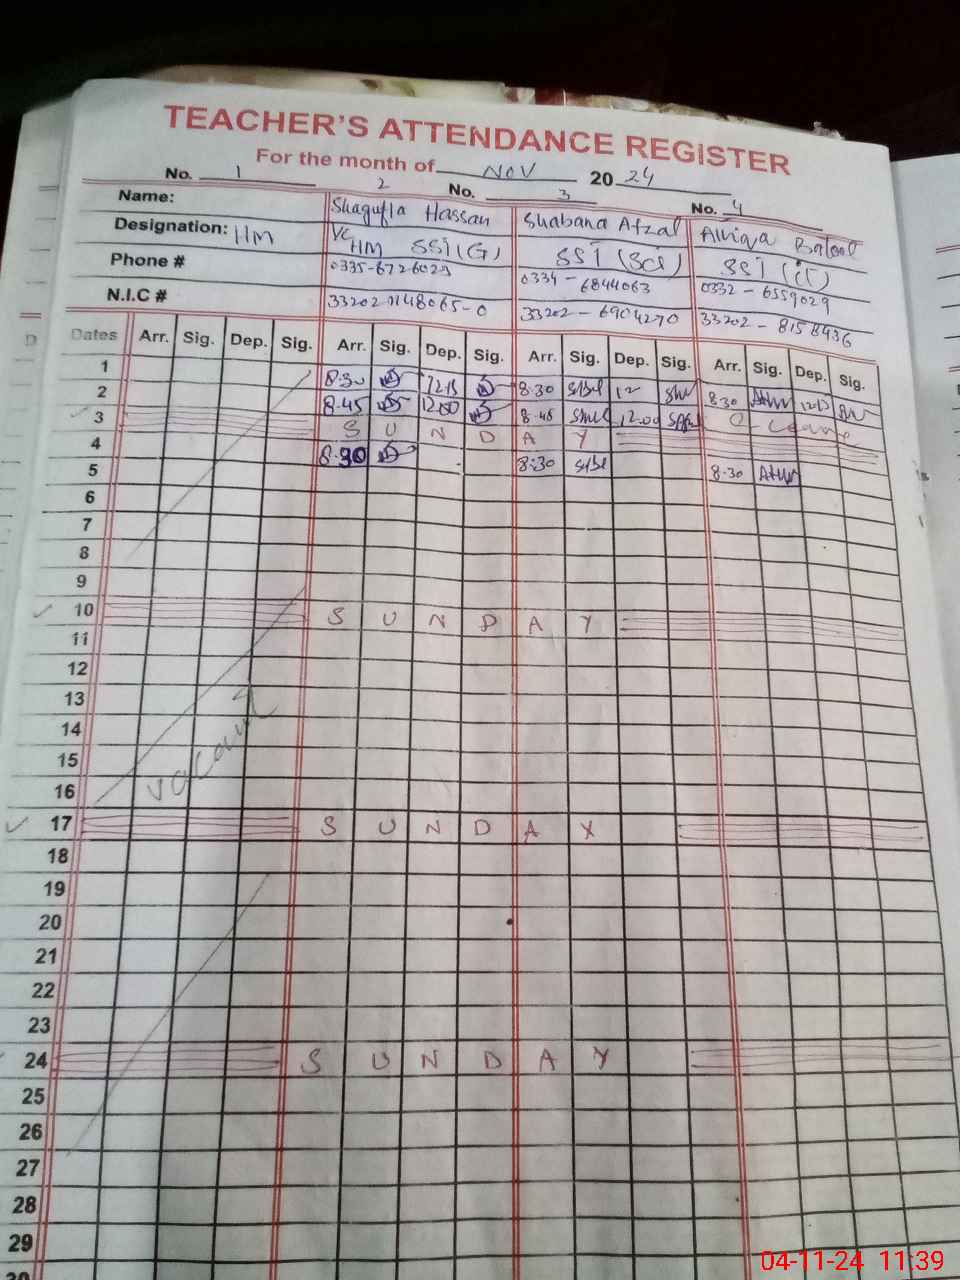 TEACHER'S ATTENDANCE REGISTER
For the month of NOV 2024
No. 1 2 No. 3 No. 4
Name: Shagufta Hassan Shabana Afzal Aniqa Batool
Designation: HM HM SST (G) SST (Sci) SST (IT)
Phone # 0335-6726029 0334-6844063 0332-6559029
N.I.C # 33202 33202-6904270 33202-8158436
Dates Arr. Sig. Dep. Sig. Arr. Sig. Dep. Sig. Arr. Sig. Dep. Sig. Arr. Sig. Dep. Sig.
1 8:30 12:15 8:30 12 8:30 12:15
2 8:45 12:00 8:45 12:00 Leave
3 S U N D A Y
4 8:30 8:30 8:30
5
6
7
8
9
10 S U N D A Y
11
12
13
14
15
16
vacant
17 S U N D A Y
18
19
20
21
22
23
24 S U N D A Y
25
26
27
28
29
30
04-11-24 11:39